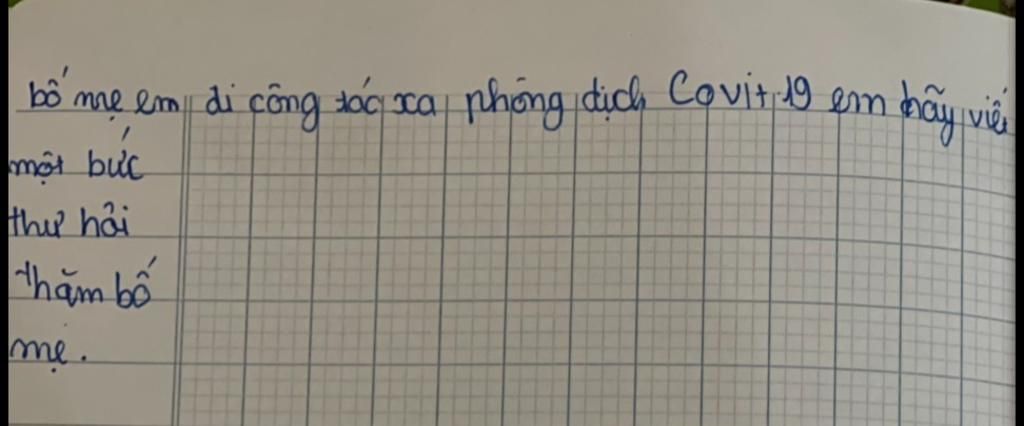 bố mẹ em đi công tác xa phòng dịch Covit 19 em hãy viế
một bức
thư hải
thăm bố
mẹ.